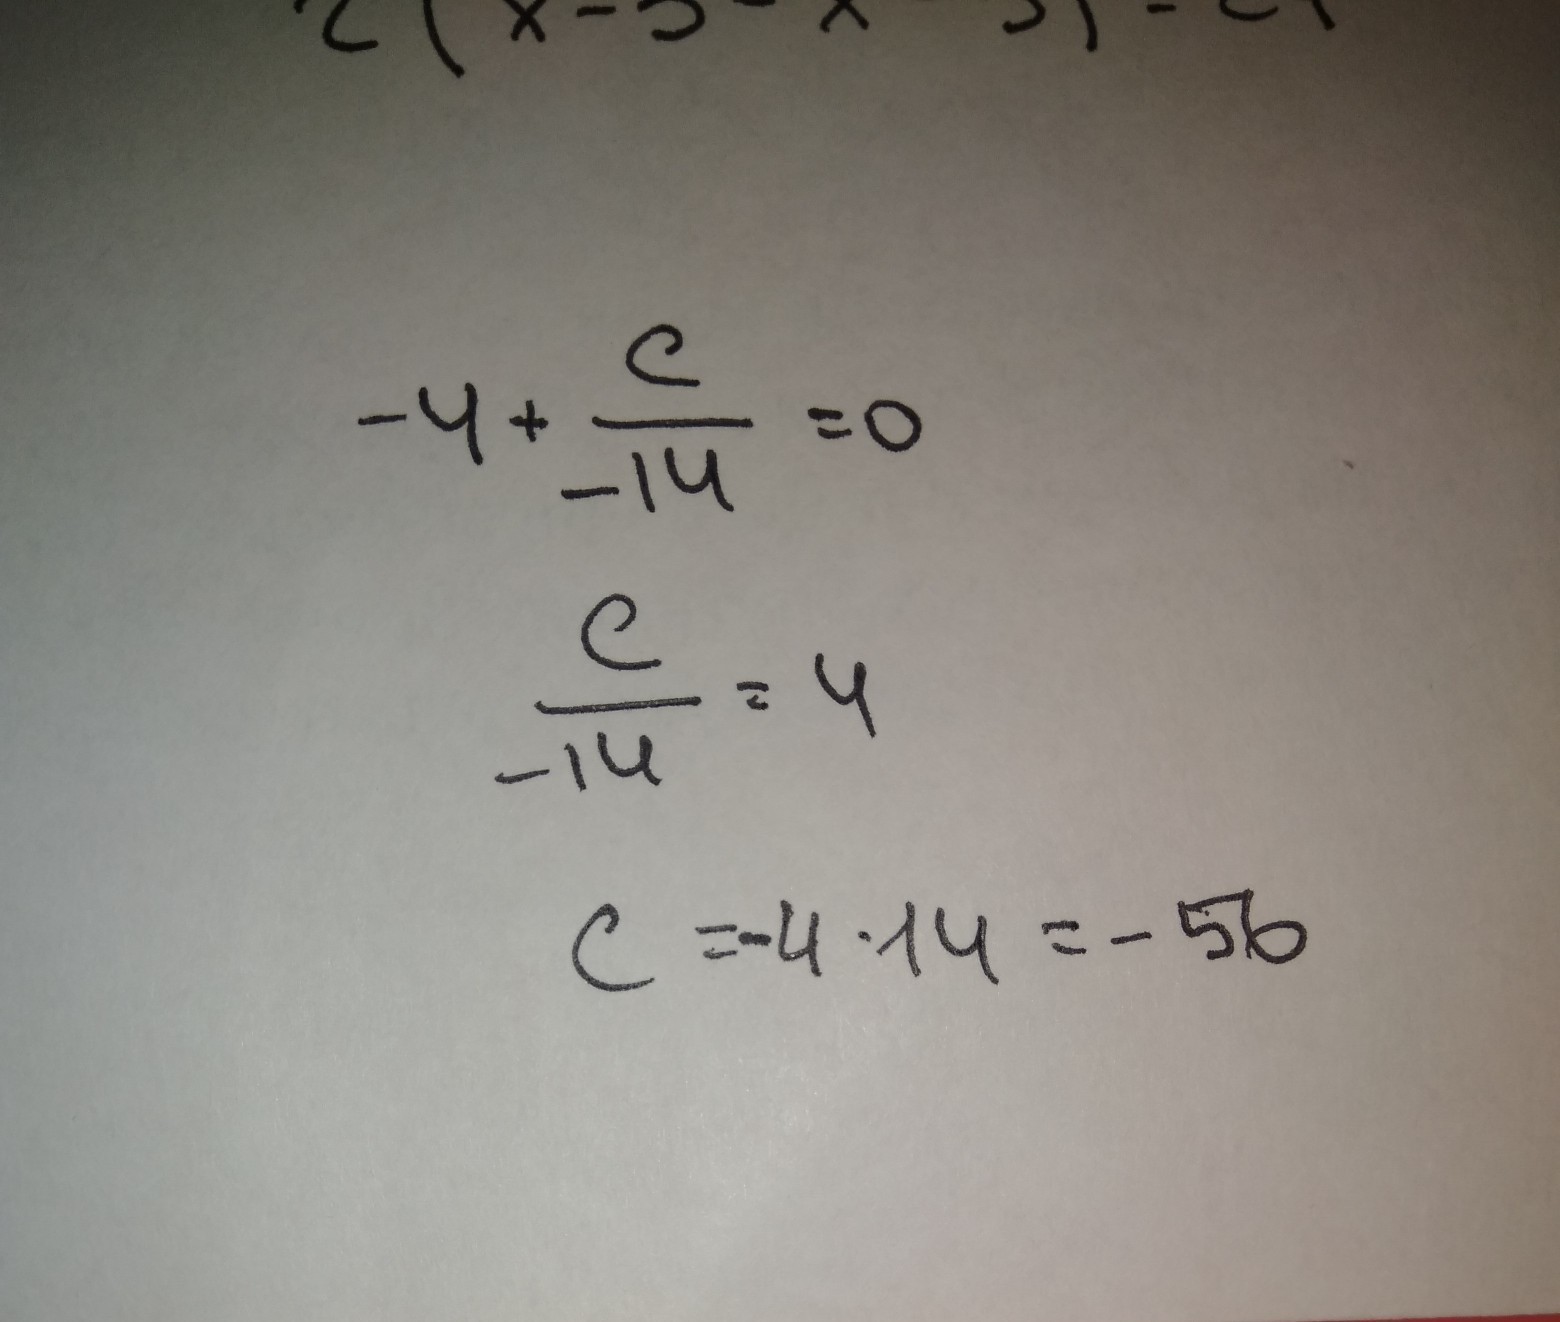 -4 + c/-14 = 0
c/-14 = 4
c = -4 · 14 = -56